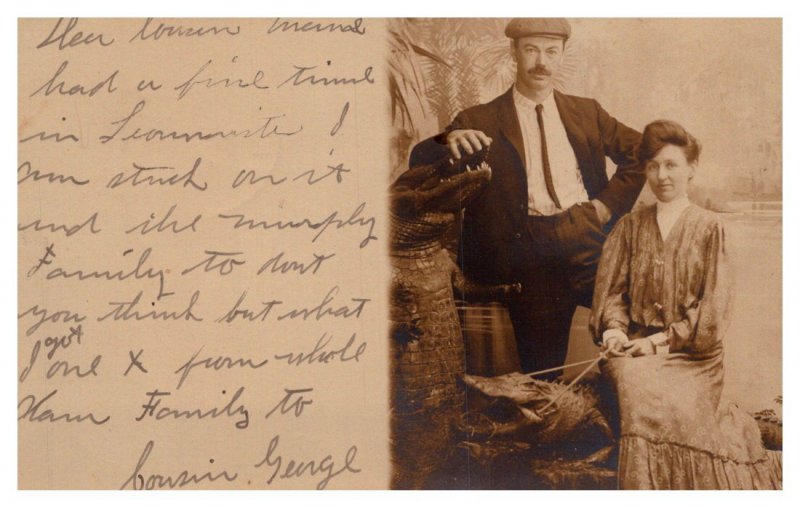 Dear Cousin Mamie
had a fine time
in Leominster I
am stuck on it
and the murphy
Family to dont
you think but what
I got one X from whole
Ham Family to
Cousin George